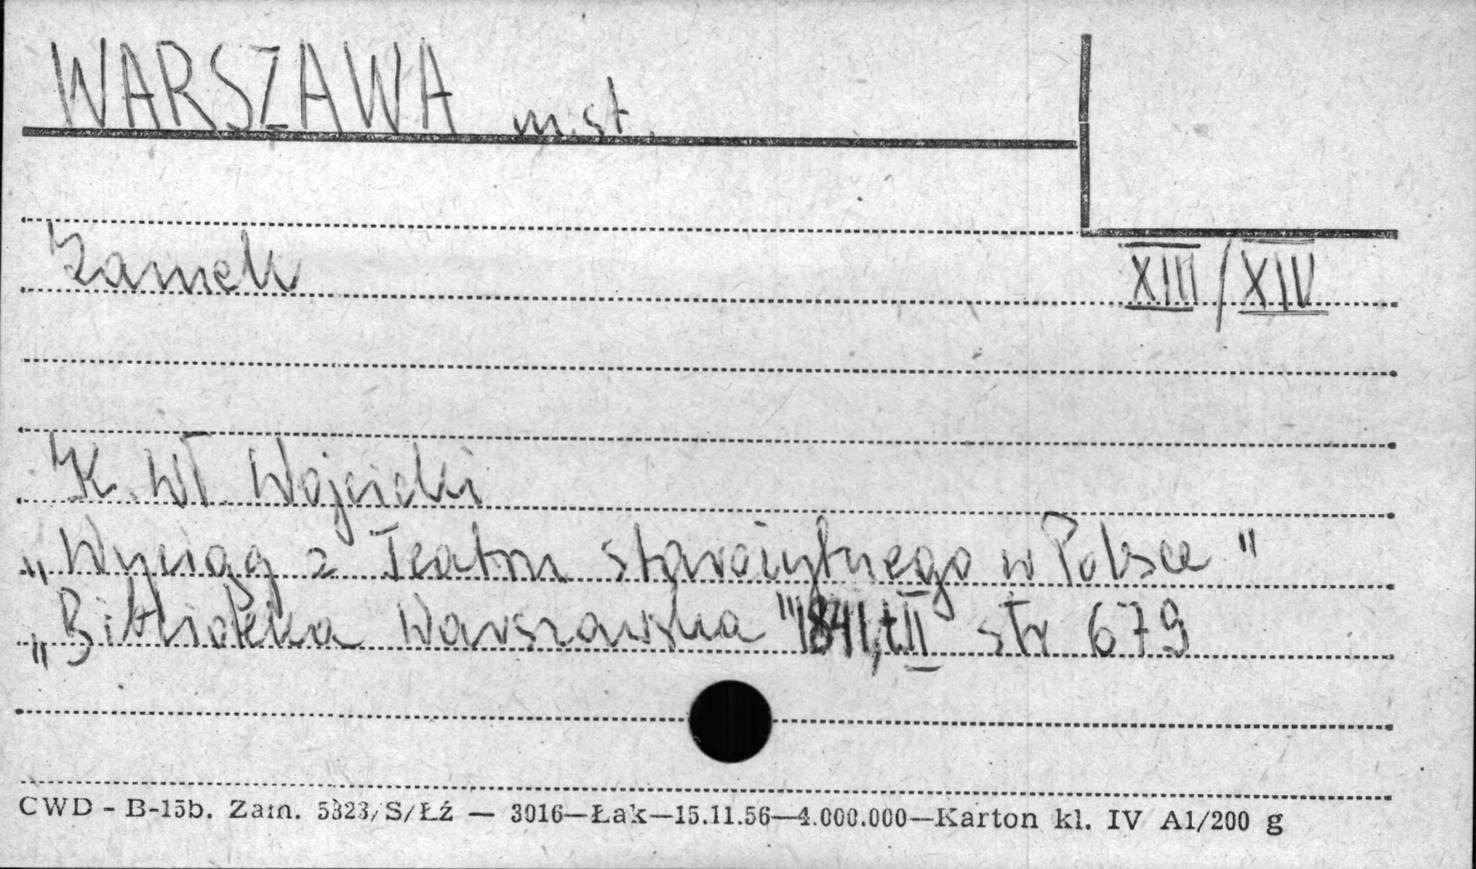 WARSZAWA m.st.
Zamek
XIII/XIV
K. Wł. Wojcicki
„Wyciąg z Teatru starożytnego w Polsce"
„Biblioteka Warszawska" 1841, t.II str 679
CWD - B-15b. Zam. 5323/S/Łź — 3016—Łak—15.11.56—4.000.000—Karton kl. IV A1/200 g